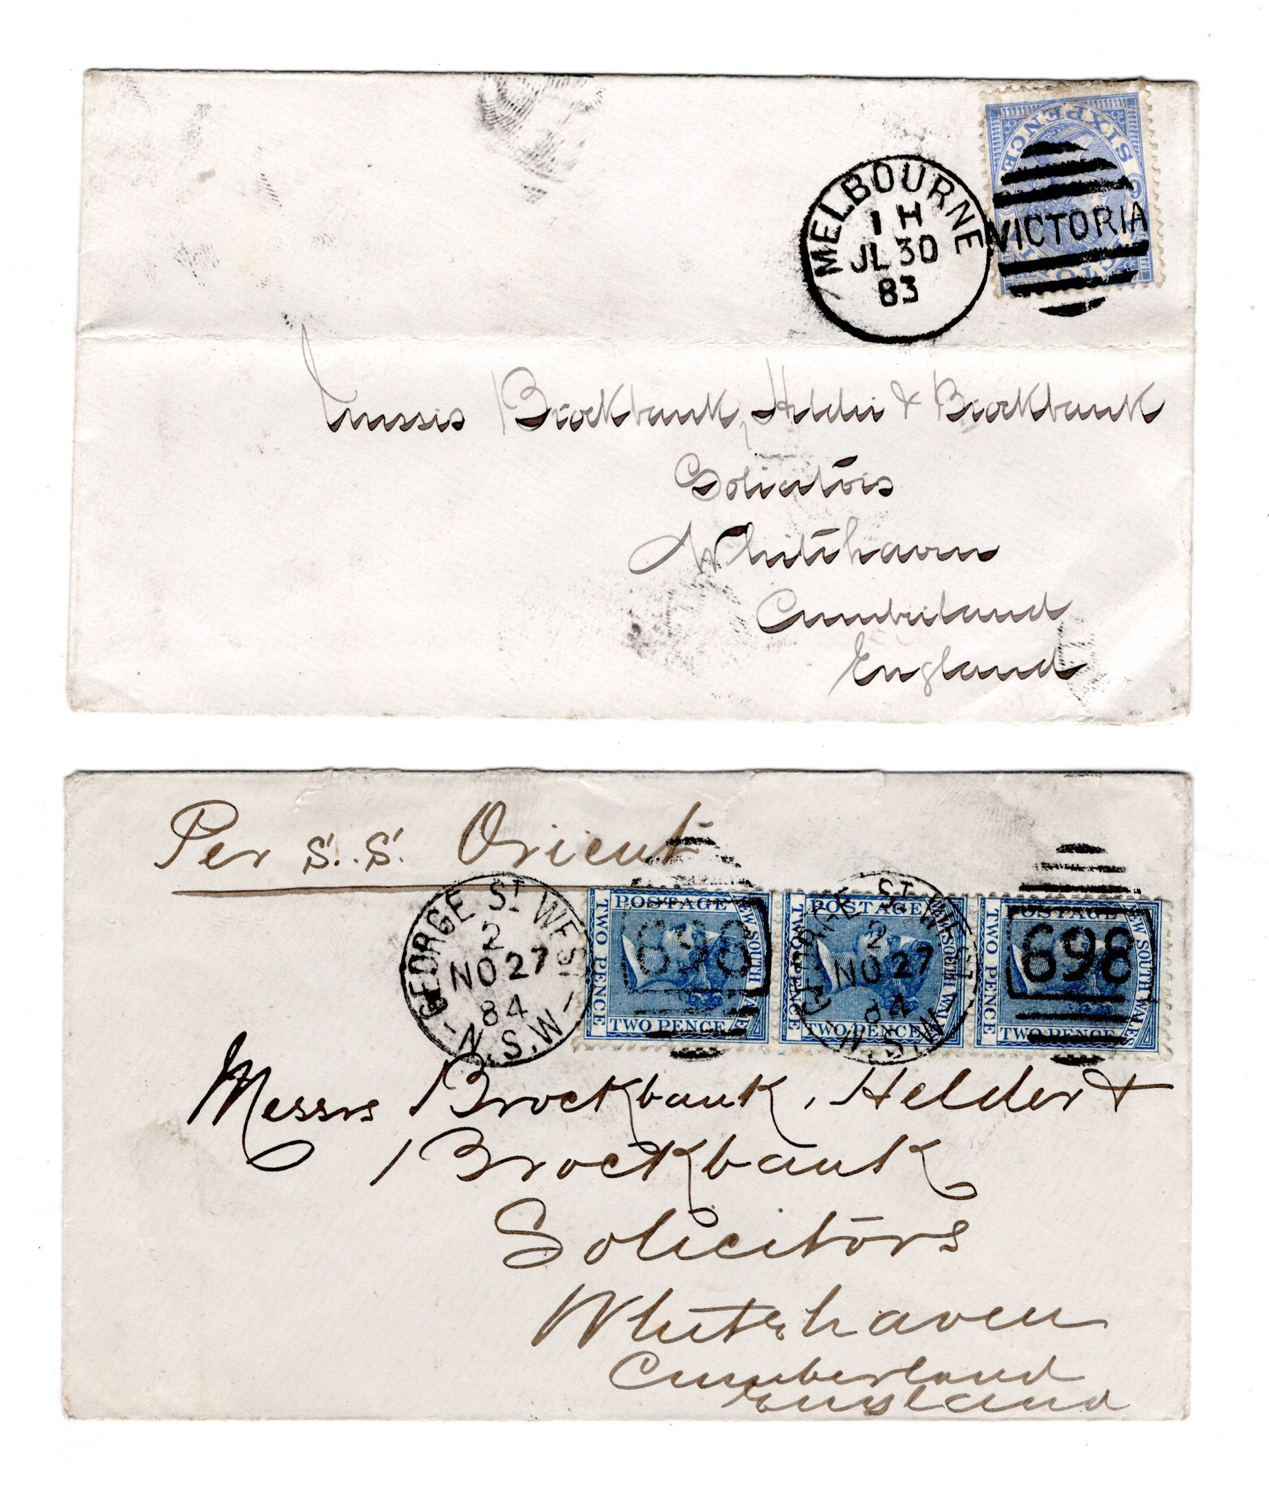 SIXPENCE
VICTORIA
MELBOURNE
1 H
JL 30
83
VICTORIA
Messrs Brockbank, Helder & Brockbank
Solicitors
Whitehaven
Cumberland
England
Per S.S. Orient
GEORGE ST WEST
2
NO 27
84
N.S.W
POSTAGE
TWO PENCE
NEW SOUTH WALES
TWO PENCE
698
POSTAGE
TWO PENCE
NEW SOUTH WALES
TWO PENCE
GEORGE ST WEST
2
NO 27
84
N.S.W
POSTAGE
TWO PENCE
NEW SOUTH WALES
TWO PENCE
698
Messrs Brockbank, Helder &
Brockbank
Solicitors
Whitehaven
Cumberland
England